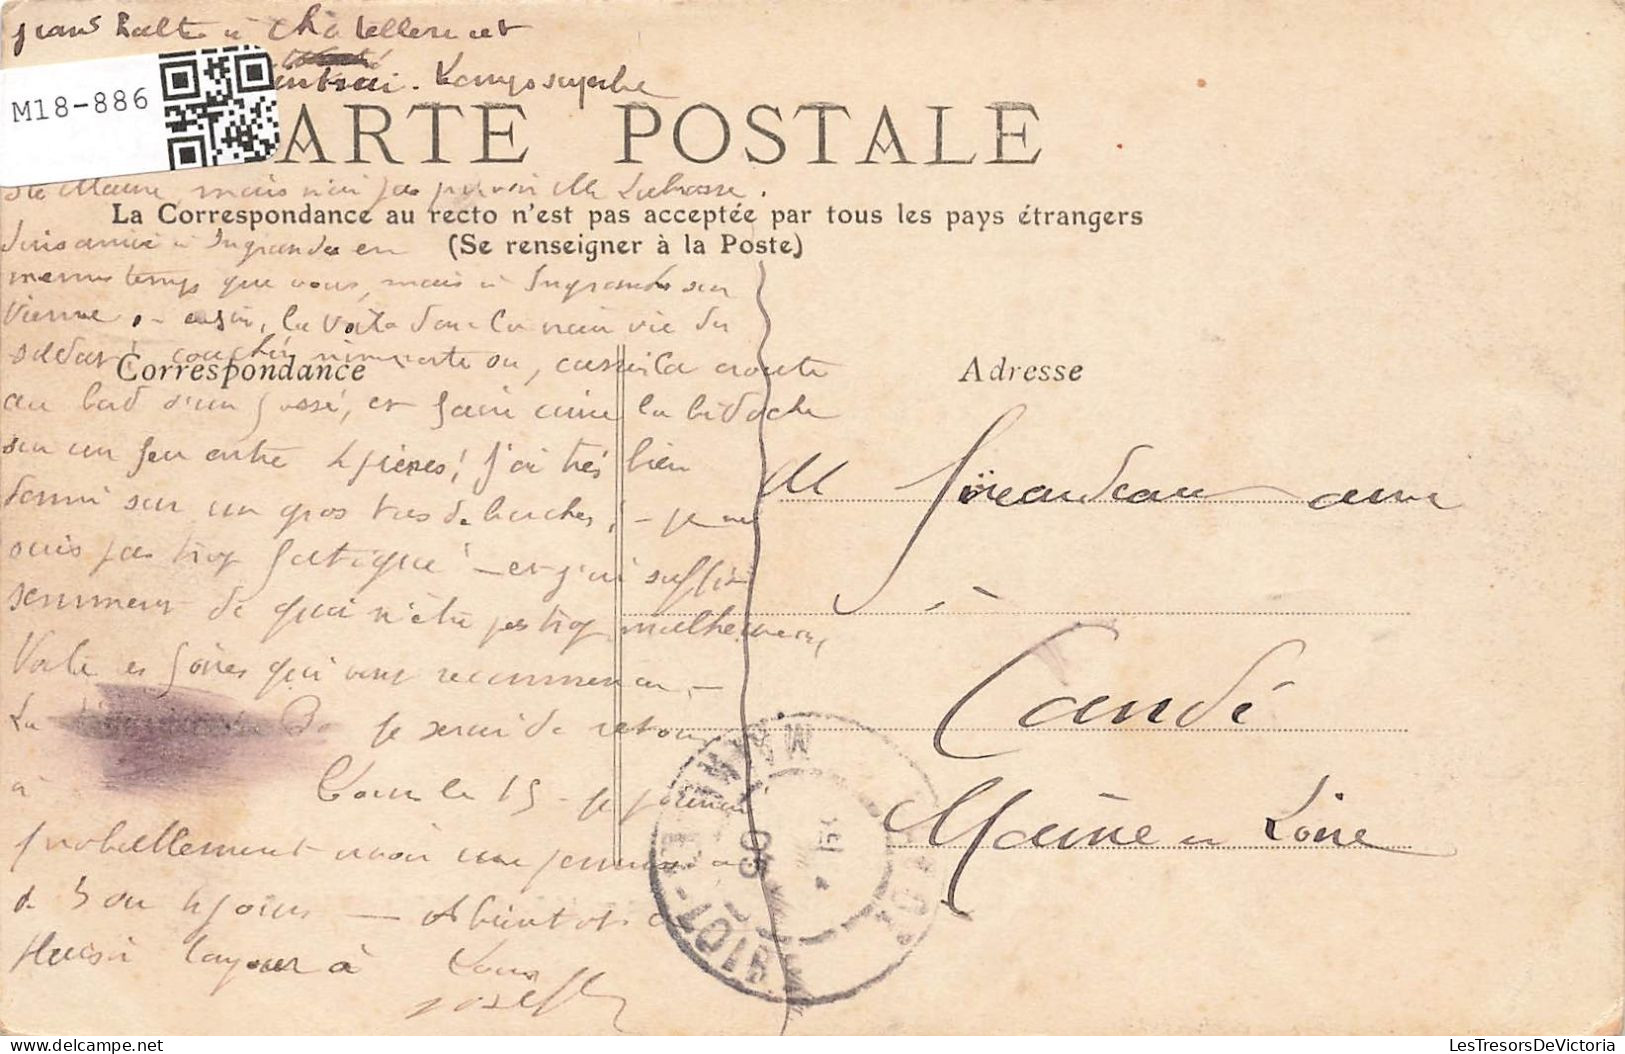 grand halte à Châtellerault
M18-886
temps superbe
CARTE POSTALE
Ste Maure, mais n'ai pas pu voir Mr
La Correspondance au recto n'est pas acceptée par tous les pays étrangers
(Se renseigner à la Poste)
Suis arrivé à Ingrandes en
même temps que vous, mais à Ingrandes sur
Vienne, - enfin, la voilà donc la vraie vie du
soldat! couché n'importe ou, casser la croute
Correspondance
Adresse
au bord d'un fossé, et faire cuire la bidoche
sur un feu entre 4 pierres! j'ai très bien
dormi sur un gros tas de buches, - je ne
suis pas trop fatigué - et j'ai suffi
semment de quoi n'être pas trop malheureux,
Voila es foires qui vont recommencer -
La je serai de retour
à Tours le 15 - je pourrai
probablement avoir une permis
de 3 ou 4 jours - A bientot
plaisir toujours à Tours
Joseph
M Giraudeau
à
Candé
Maine et Loire
MAINE-ET-LOIRE
05
LesTresorsDeVictoria.com